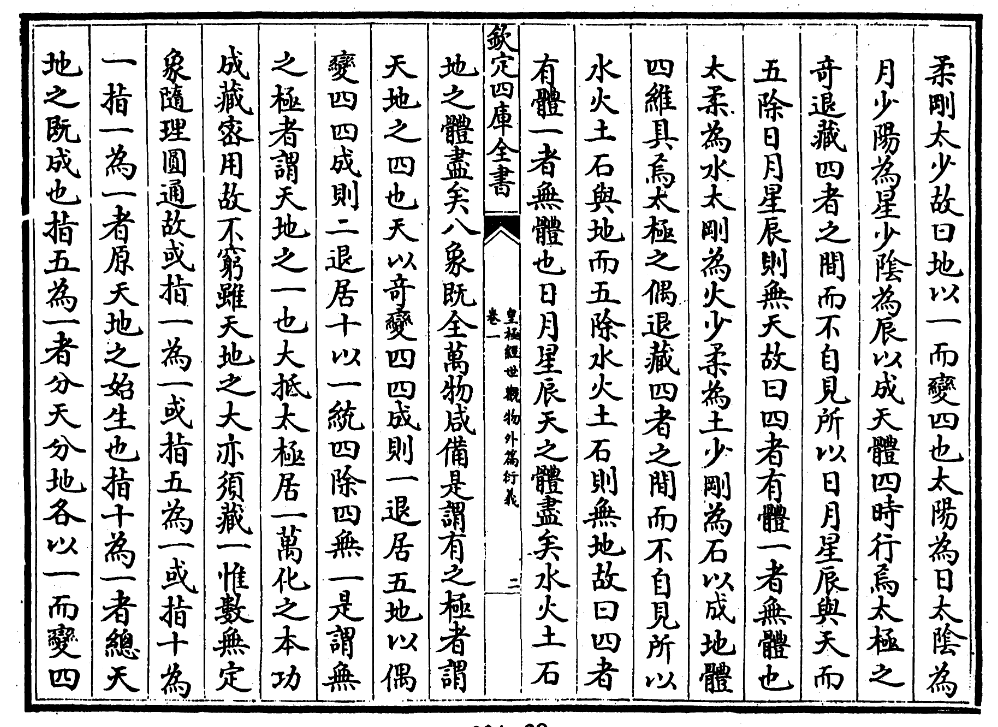 柔剛太少故曰地以一而變四也太陽為日太陰為
月少陽為星少陰為辰以成天體四時行焉太極之
奇退藏四者之間而不自見所以日月星辰與天而
五除日月星辰則無天故曰四者有體一者無體也
太柔為水太剛為火少柔為土少剛為石以成地體
四維具焉太極之偶退藏四者之間而不自見所以
水火土石與地而五除水火土石則無地故曰四者
有體一者無體也日月星辰天之體盡矣水火土石
欽定四庫全書
皇極經世觀物外篇衍義
卷一
二
地之體盡矣八象既全萬物咸備是謂有之極者謂
天地之四也天以奇變四四成則一退居五地以偶
變四四成則二退居十以一統四除四無一是謂無
之極者謂天地之一也大抵太極居一萬化之本功
成藏密用故不窮雖天地之大亦須藏一惟數無定
象隨理圓通故或指一為一或指五為一或指十為
一指一為一者原天地之始生也指十為一者總天
地之既成也指五為一者分天分地各以一而變四